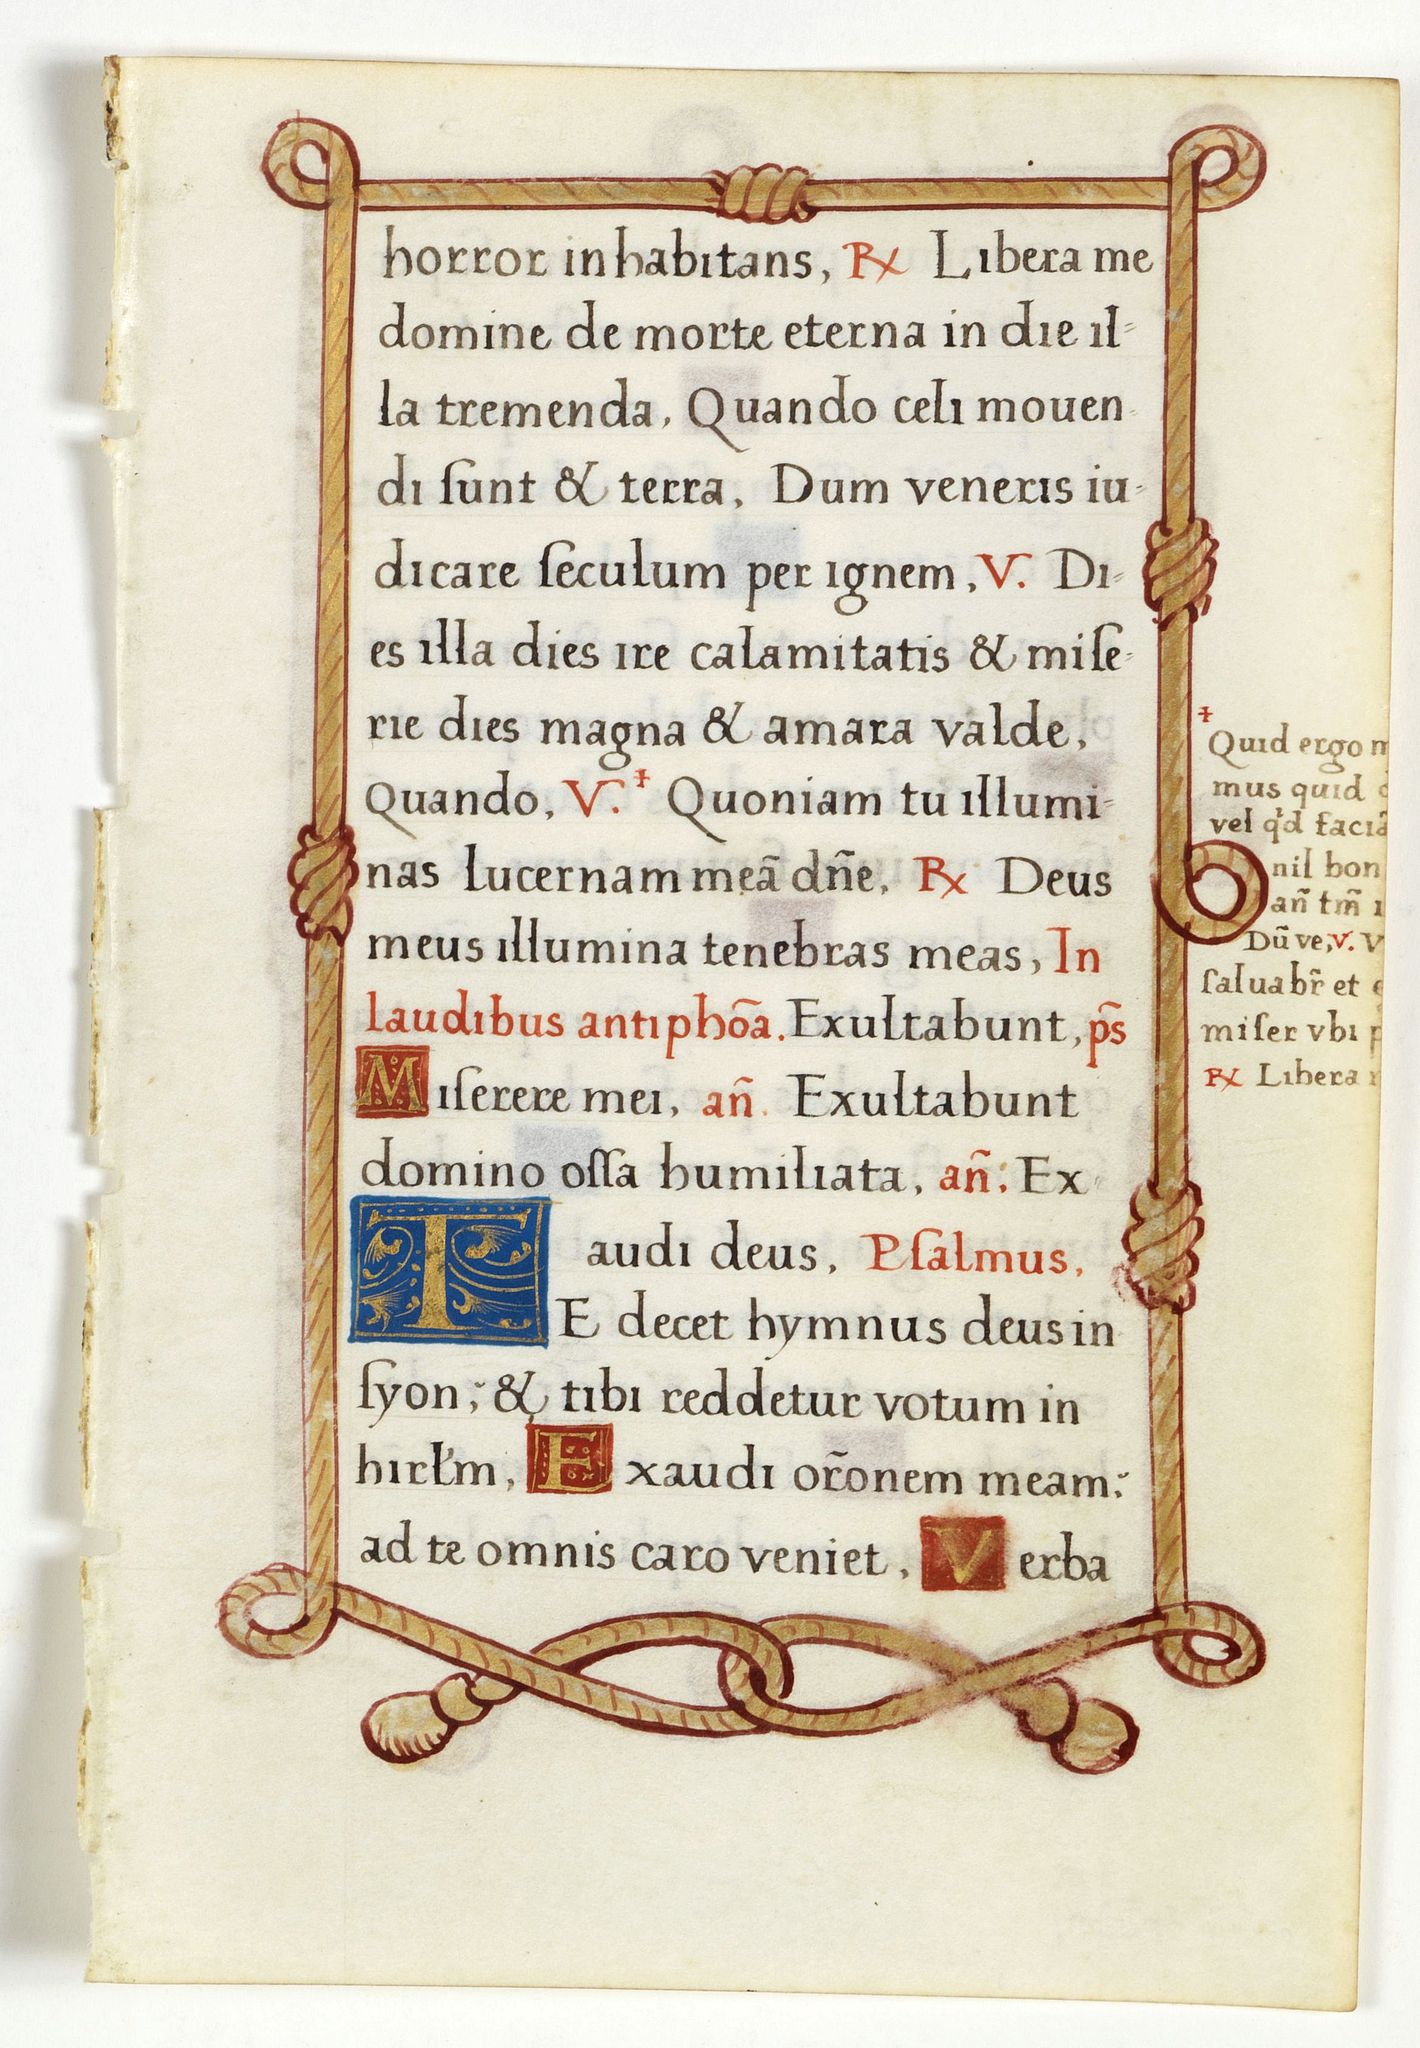 horror inhabitans, ℟ Libera me
domine de morte eterna in die il=
la tremenda, Quando celi mouen-
di ſunt & terra, Dum veneris iu=
dicare ſeculum per ignem, V. Di=
es illa dies ire calamitatis & miſe=
rie dies magna & amara valde,
Quando, V.‡ Quoniam tu illumi=
nas lucernam meã dñe, ℟ Deus
meus illumina tenebras meas, In
laudibus antiphõa. Exultabunt, p̃s
Miſerere mei, añ. Exultabunt
domino oſſa humiliata, añ: Ex=
audi deus, Pſalmus,
TE decet hymnus deus in
ſyon, & tibi reddetur votum in
hirłm, Exaudi or̃onem meam:
ad te omnis caro veniet, Verba
‡
Quid ergo
mus quid
vel qd faciã
nil bon
añ tm̃
Dũ ve, V.
ſaluabr̃ et
miſer vbi
℟ Libera